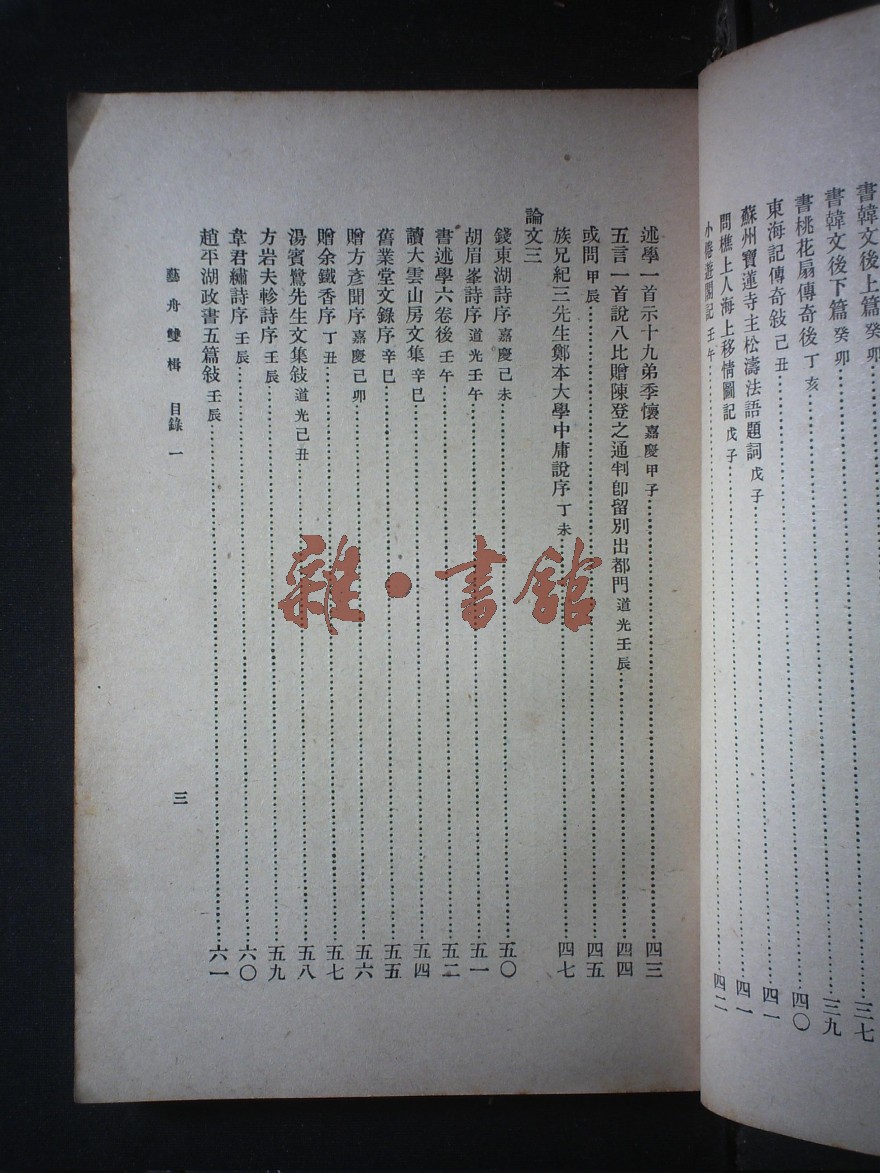 書韓文後上篇 癸卯……三七
書韓文後下篇 癸卯……三九
書桃花扇傳奇後 丁亥……四〇
東海記傳奇敍 己丑……四一
蘇州寶蓮寺主松濤法語題詞 戊子……四一
問樵上人海上移情圖記 戊子……四二
小倦遊閣記 壬午……
述學一首示十九弟季懷 嘉慶甲子……四三
五言一首說八比贈陳登之通判卽留別出都門 道光壬辰……四四
或問 甲辰……四五
族兄紀三先生鄭本大學中庸說序 丁未……四七
論文三
錢東湖詩序 嘉慶己未……五〇
胡眉峯詩序 道光壬午……五一
書述學六卷後 壬午……五二
讀大雲山房文集 辛巳……五四
舊業堂文錄序 辛巳……五五
贈方彥聞序 嘉慶己卯……五六
贈余鐵香序 丁丑……五七
湯賓鷺先生文集敍 道光己丑……五八
方岩夫軫詩序 壬辰……五九
韋君繡詩序 壬辰……六〇
趙平湖政書五篇敍 壬辰……六一
藝舟雙楫 目錄一
三
雜·書館